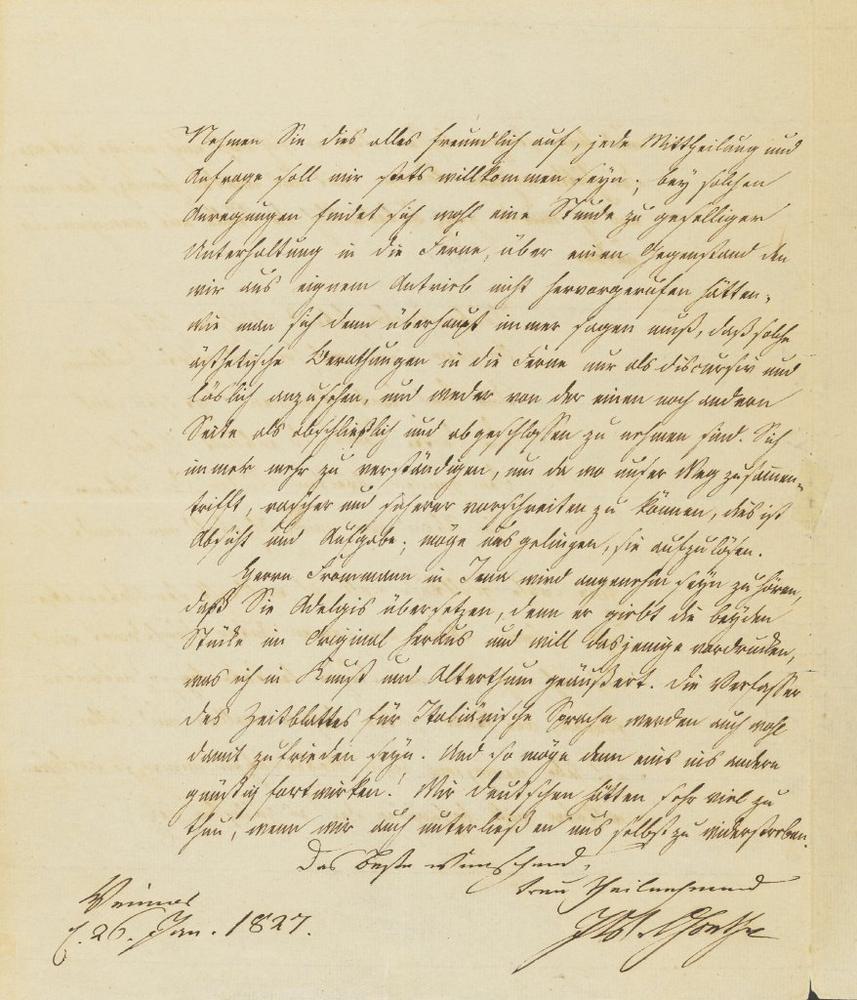 Nehmen Sie dies alles freundlich auf, jede Mittheilung und
Anfrage soll mir stets willkommen seyn; bey solchen
Anregungen findet sich wohl eine Stunde zu geselliger
Unterhaltung in die Ferne, über einen Gegenstand den
wir aus eignem Antrieb nicht hervorgerufen hätten;
wie man sich denn überhaupt immer sagen muß, daß solche
ästhetische Berathungen in die Ferne nur als discursiv und
löslich anzusehen, und weder von der einen noch andern
Seite als abschließlich und abgeschlossen zu nehmen sind. Sich
immer mehr zu verständigen, um da wo unser Weg zusamen-
trifft, rascher und sicherer vorschreiten zu können, dies ist
Absicht und Aufgabe; möge uns gelingen, sie aufzulösen.
Herrn Frommann in Jena wird angenehm seyn zu hören,
daß Sie Adelgis übersetzen, denn er giebt die beyden
Stücke im Original heraus und will dasjenige vordrucken,
was ich in Kunst und Alterthum geäußert. Die Verfasser
des Zeitblattes für Italiänische Sprache werden auch wohl
damit zufrieden seyn. Und so möge denn eins ins andere
günstig fortwirken! Wir Deutschen hätten sehr viel zu
thun, wenn wir auch unterließen uns selbst zu widerstreben.
Das Beste wünschend,
treu theilnehmend
Weimar
d. 26. Jan. 1827.
JW. v Goethe